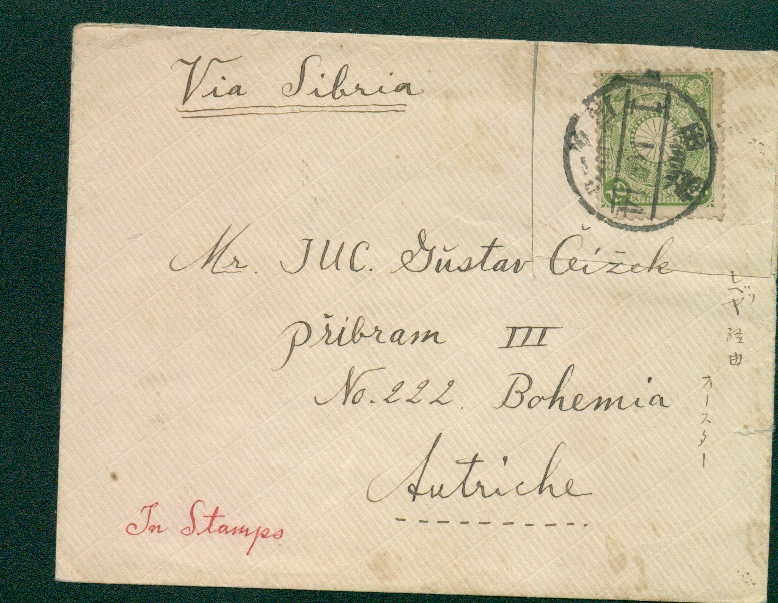 Via Sibria
Mr. JUC. Gŭstav Čížek
Příbram III
No. 222. Bohemia
Autriche
In Stamps
シベリヤ経由
オースター